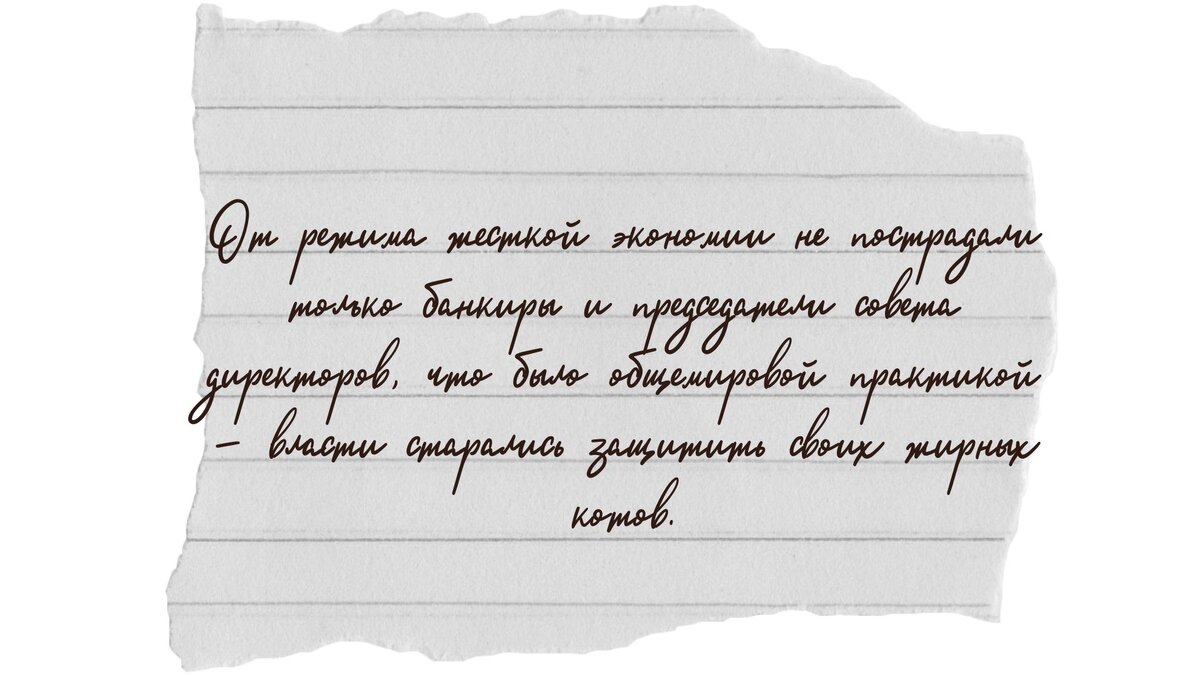 От режима жесткой экономии не пострадали
только банкиры и председатели совета
директоров, что было общемировой практикой
– власти старались защитить своих жирных
котов.